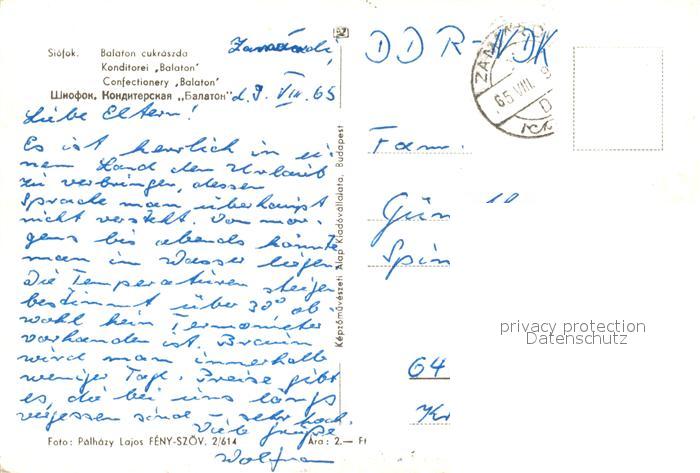 Siófok. Balaton cukrászda
Konditorei „Balaton"
Confectionery „Balaton"
Шиофок. Кондитерская „Балатон"
Zamárdi,
d. 9. VIII. 65
Liebe Eltern!
Es ist herrlich in ei-
nem Land den Urlaub
zu verbringen, dessen
Sprache man überhaupt
nicht versteht. Von mor-
gens bis abends könnte
man im Wasser liegen.
Die Temperaturen steigen
bestimmt über 30° ob-
wohl kein Termometer
vorhanden ist. Braun
wird man innerhalb
weniger Tage. Preise gibt
es, die bei uns längs
vergessen sind – sehr hoch.
Viele Grüße
Wolfram
Foto: Pálházy Lajos FÉNY-SZÖV. 2/614
Ára: 2.— Ft
Képzőművészeti Alap Kiadóvállalata, Budapest
DDR-NDK
65 VIII. 9
Fam.
Gün 10
Spin
64
privacy protection
Datenschutz